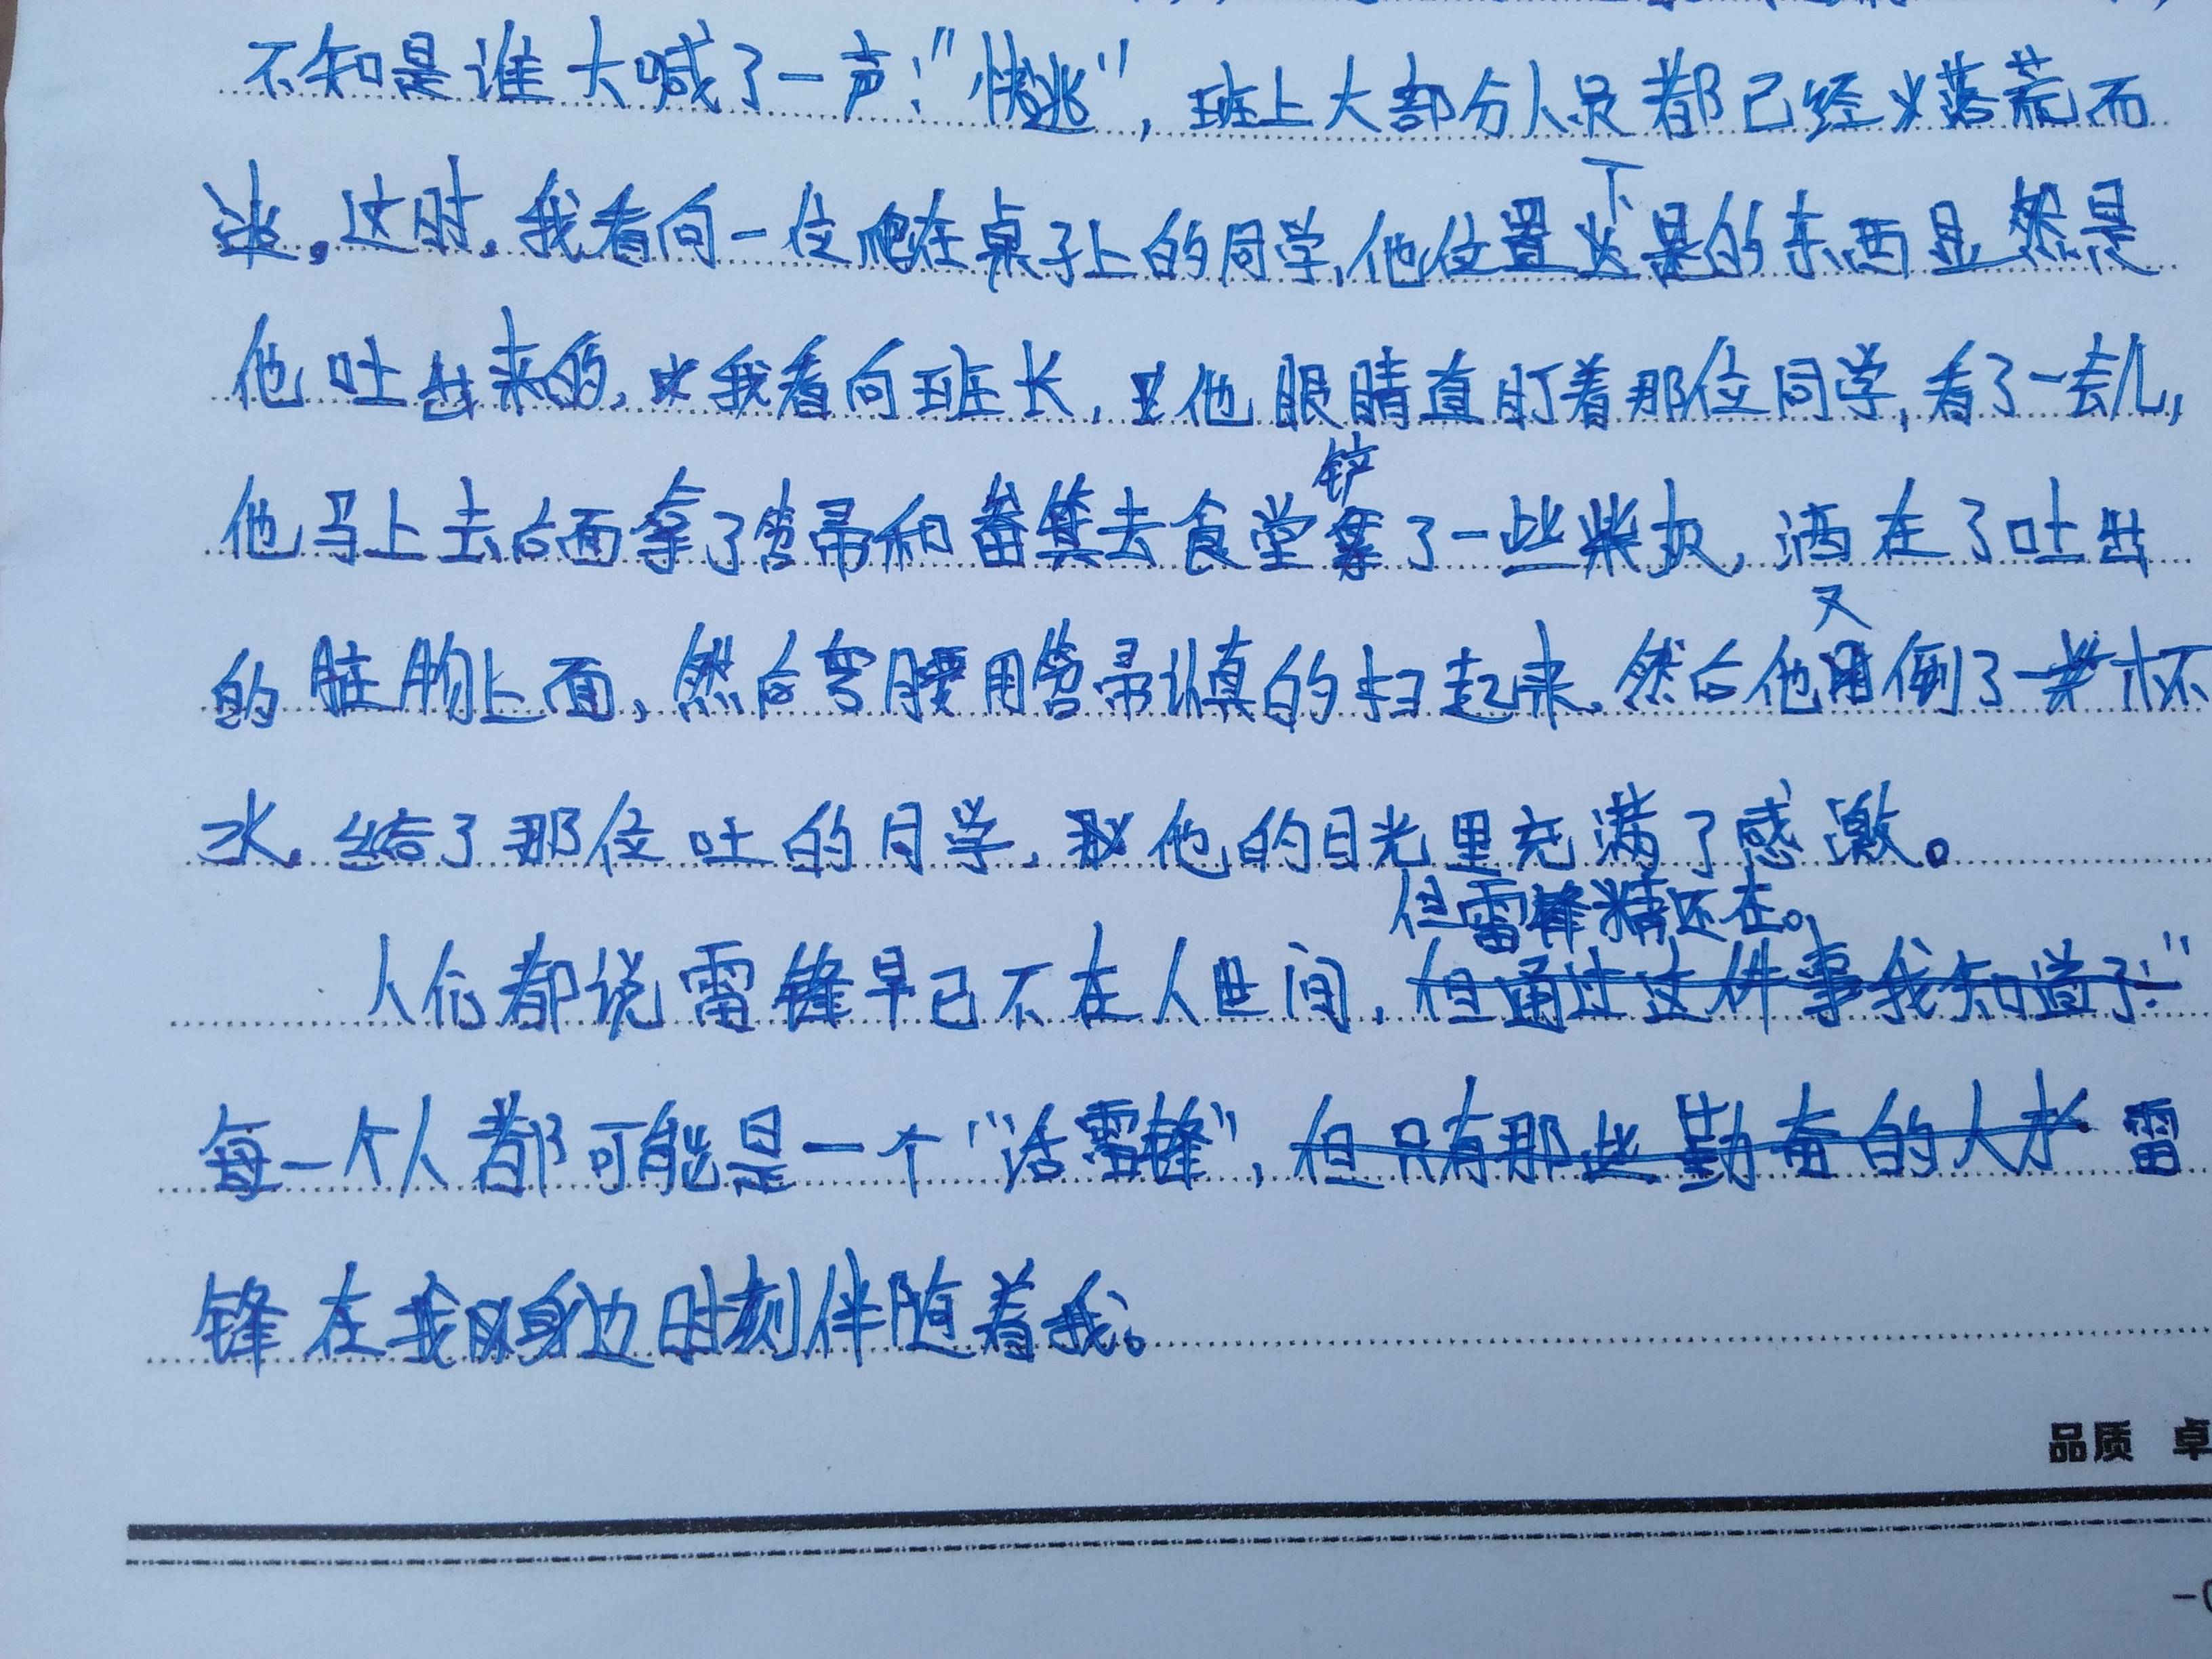 不知是谁大喊了一声:"快逃",班上大部分人员都已经落荒而
逃。这时,我看向一位爬在桌子上的同学,他位置下的东西显然是
他吐出来的,我看向班长,他眼睛直盯着那位同学,看了一会儿,
他马上去后面拿了笤帚和畚箕去食堂铲了一些柴灰,洒在了吐出
的脏物上面,然后弯腰用笤帚认真的扫起来,然后他又倒了一杯
水,给了那位吐的同学,他的目光里充满了感激。
但雷锋精还在。
人们都说雷锋早已不在人世间,但通过这件事我知道了:"
每一个人都可能是一个"活雷锋",但只有那些勤奋的人才 雷
锋在我身边时刻伴随着我。
品质 卓